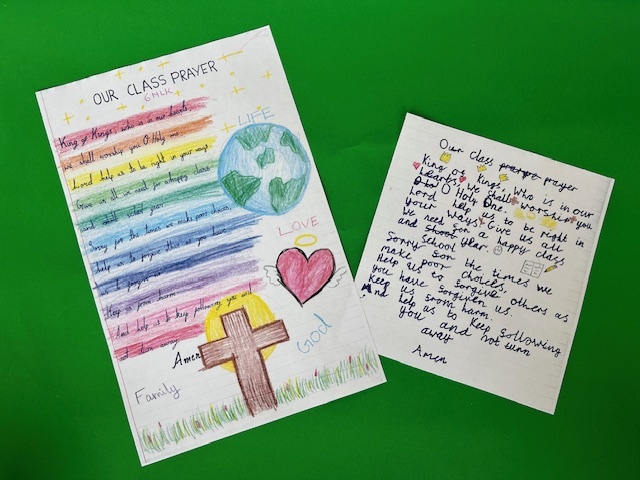 OUR CLASS PRAYER
6MLK
King of Kings, who is in our hearts,
we shall worship you O Holy one.
Lord help us to be right in your ways
Give us all we need for a happy class
and school year.
Sorry for the times we make poor choices,
help us to forgive those as you have
us forgiven us.
Keep us from harm
And help us to keep following you and
not turn away
Amen
LIFE
LOVE
God
Family
Our Class prayer prayer
King of Kings, Who is in our
hearts, we shall worship you
O Holy One.
Lord help us to be right in
your ways. Give us all
we need for a happy class
and School year.
Sorry for the times we
make poor choices.
Help us to forgive others as
you have forgiven us.
Keep us from harm.
And help us to keep following
you and not turn
away
Amen